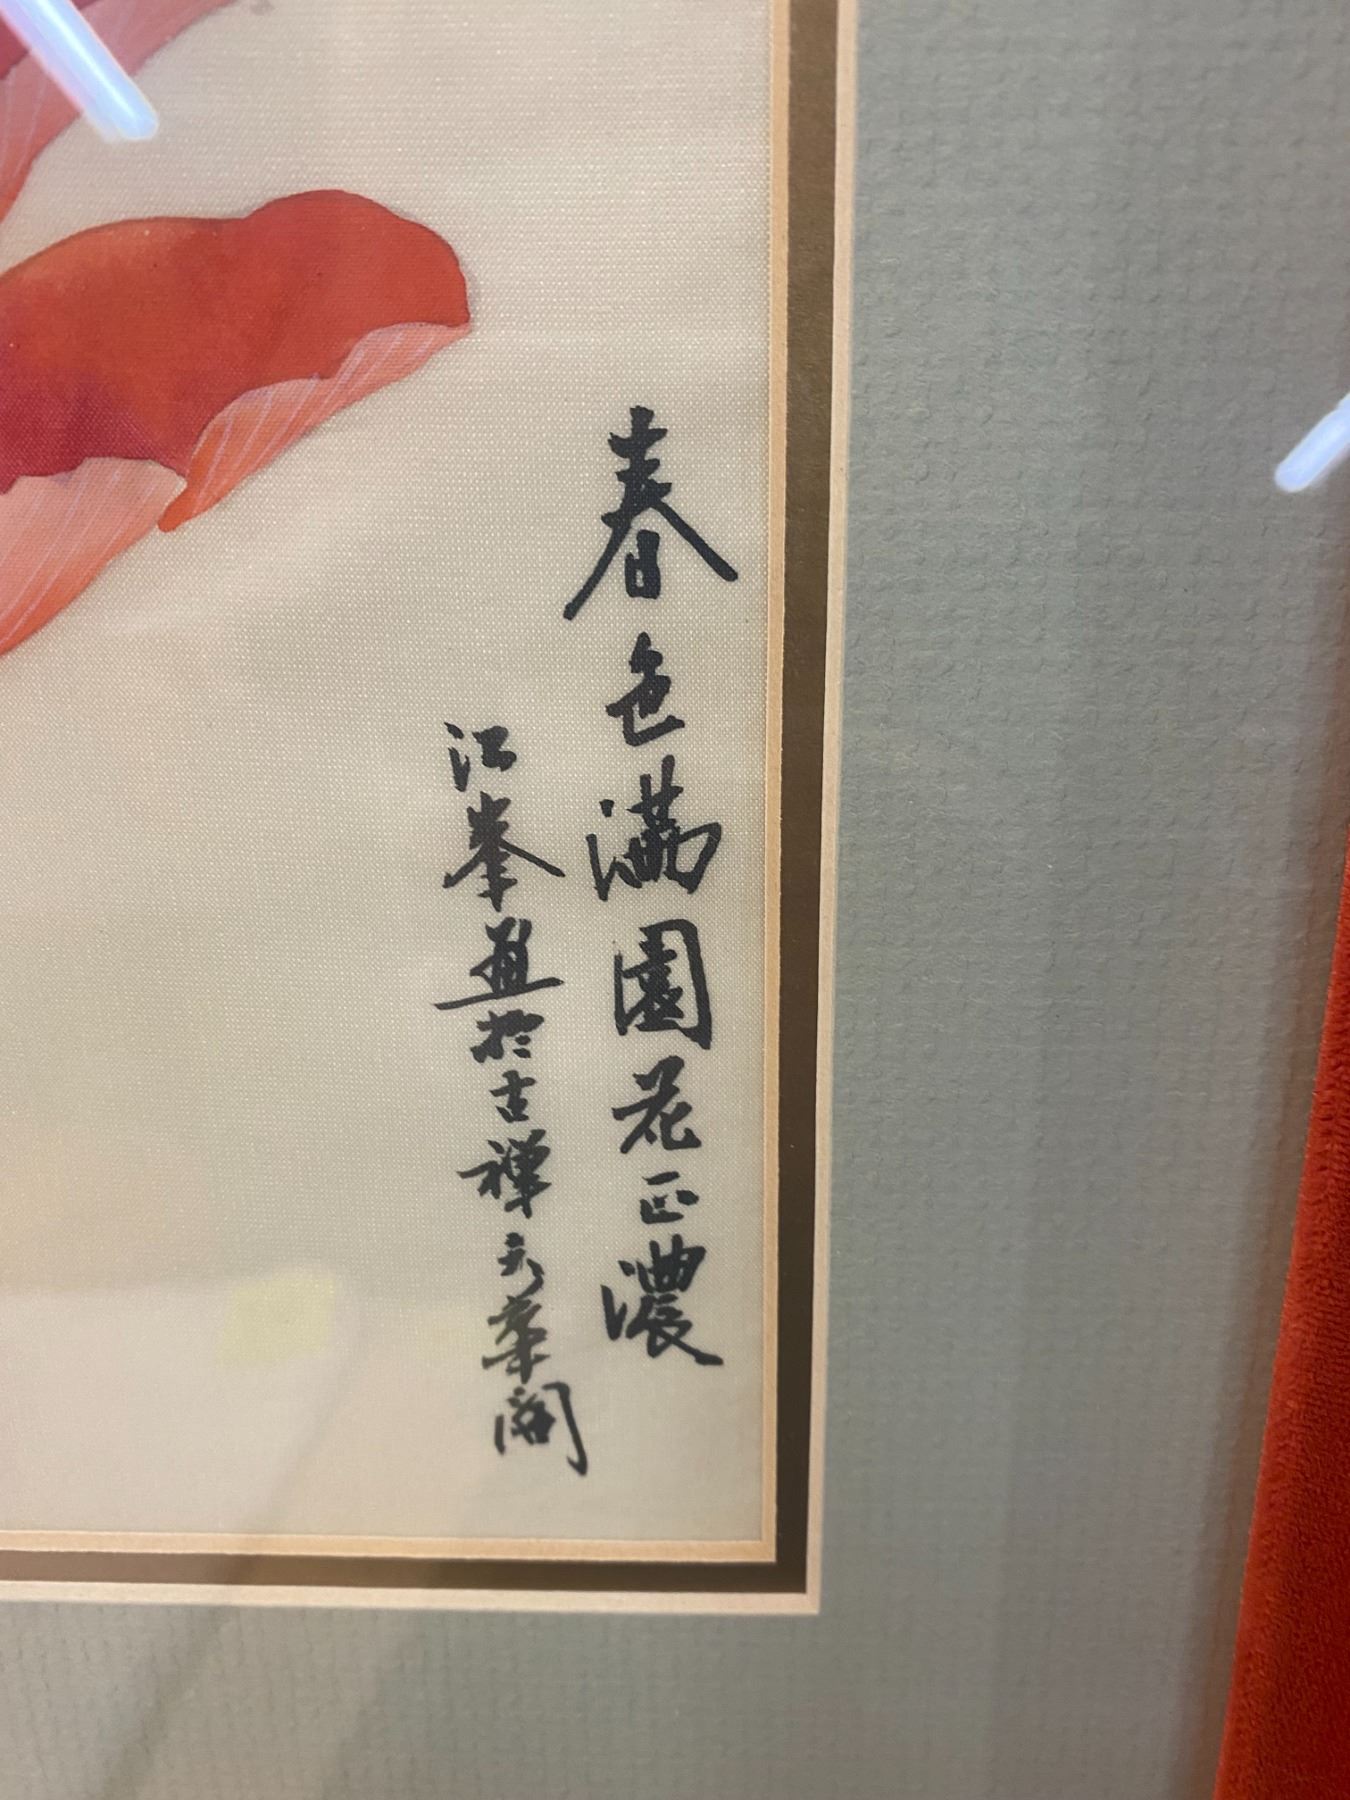 春色滿園花正濃
江峯畫於古禪元華閣